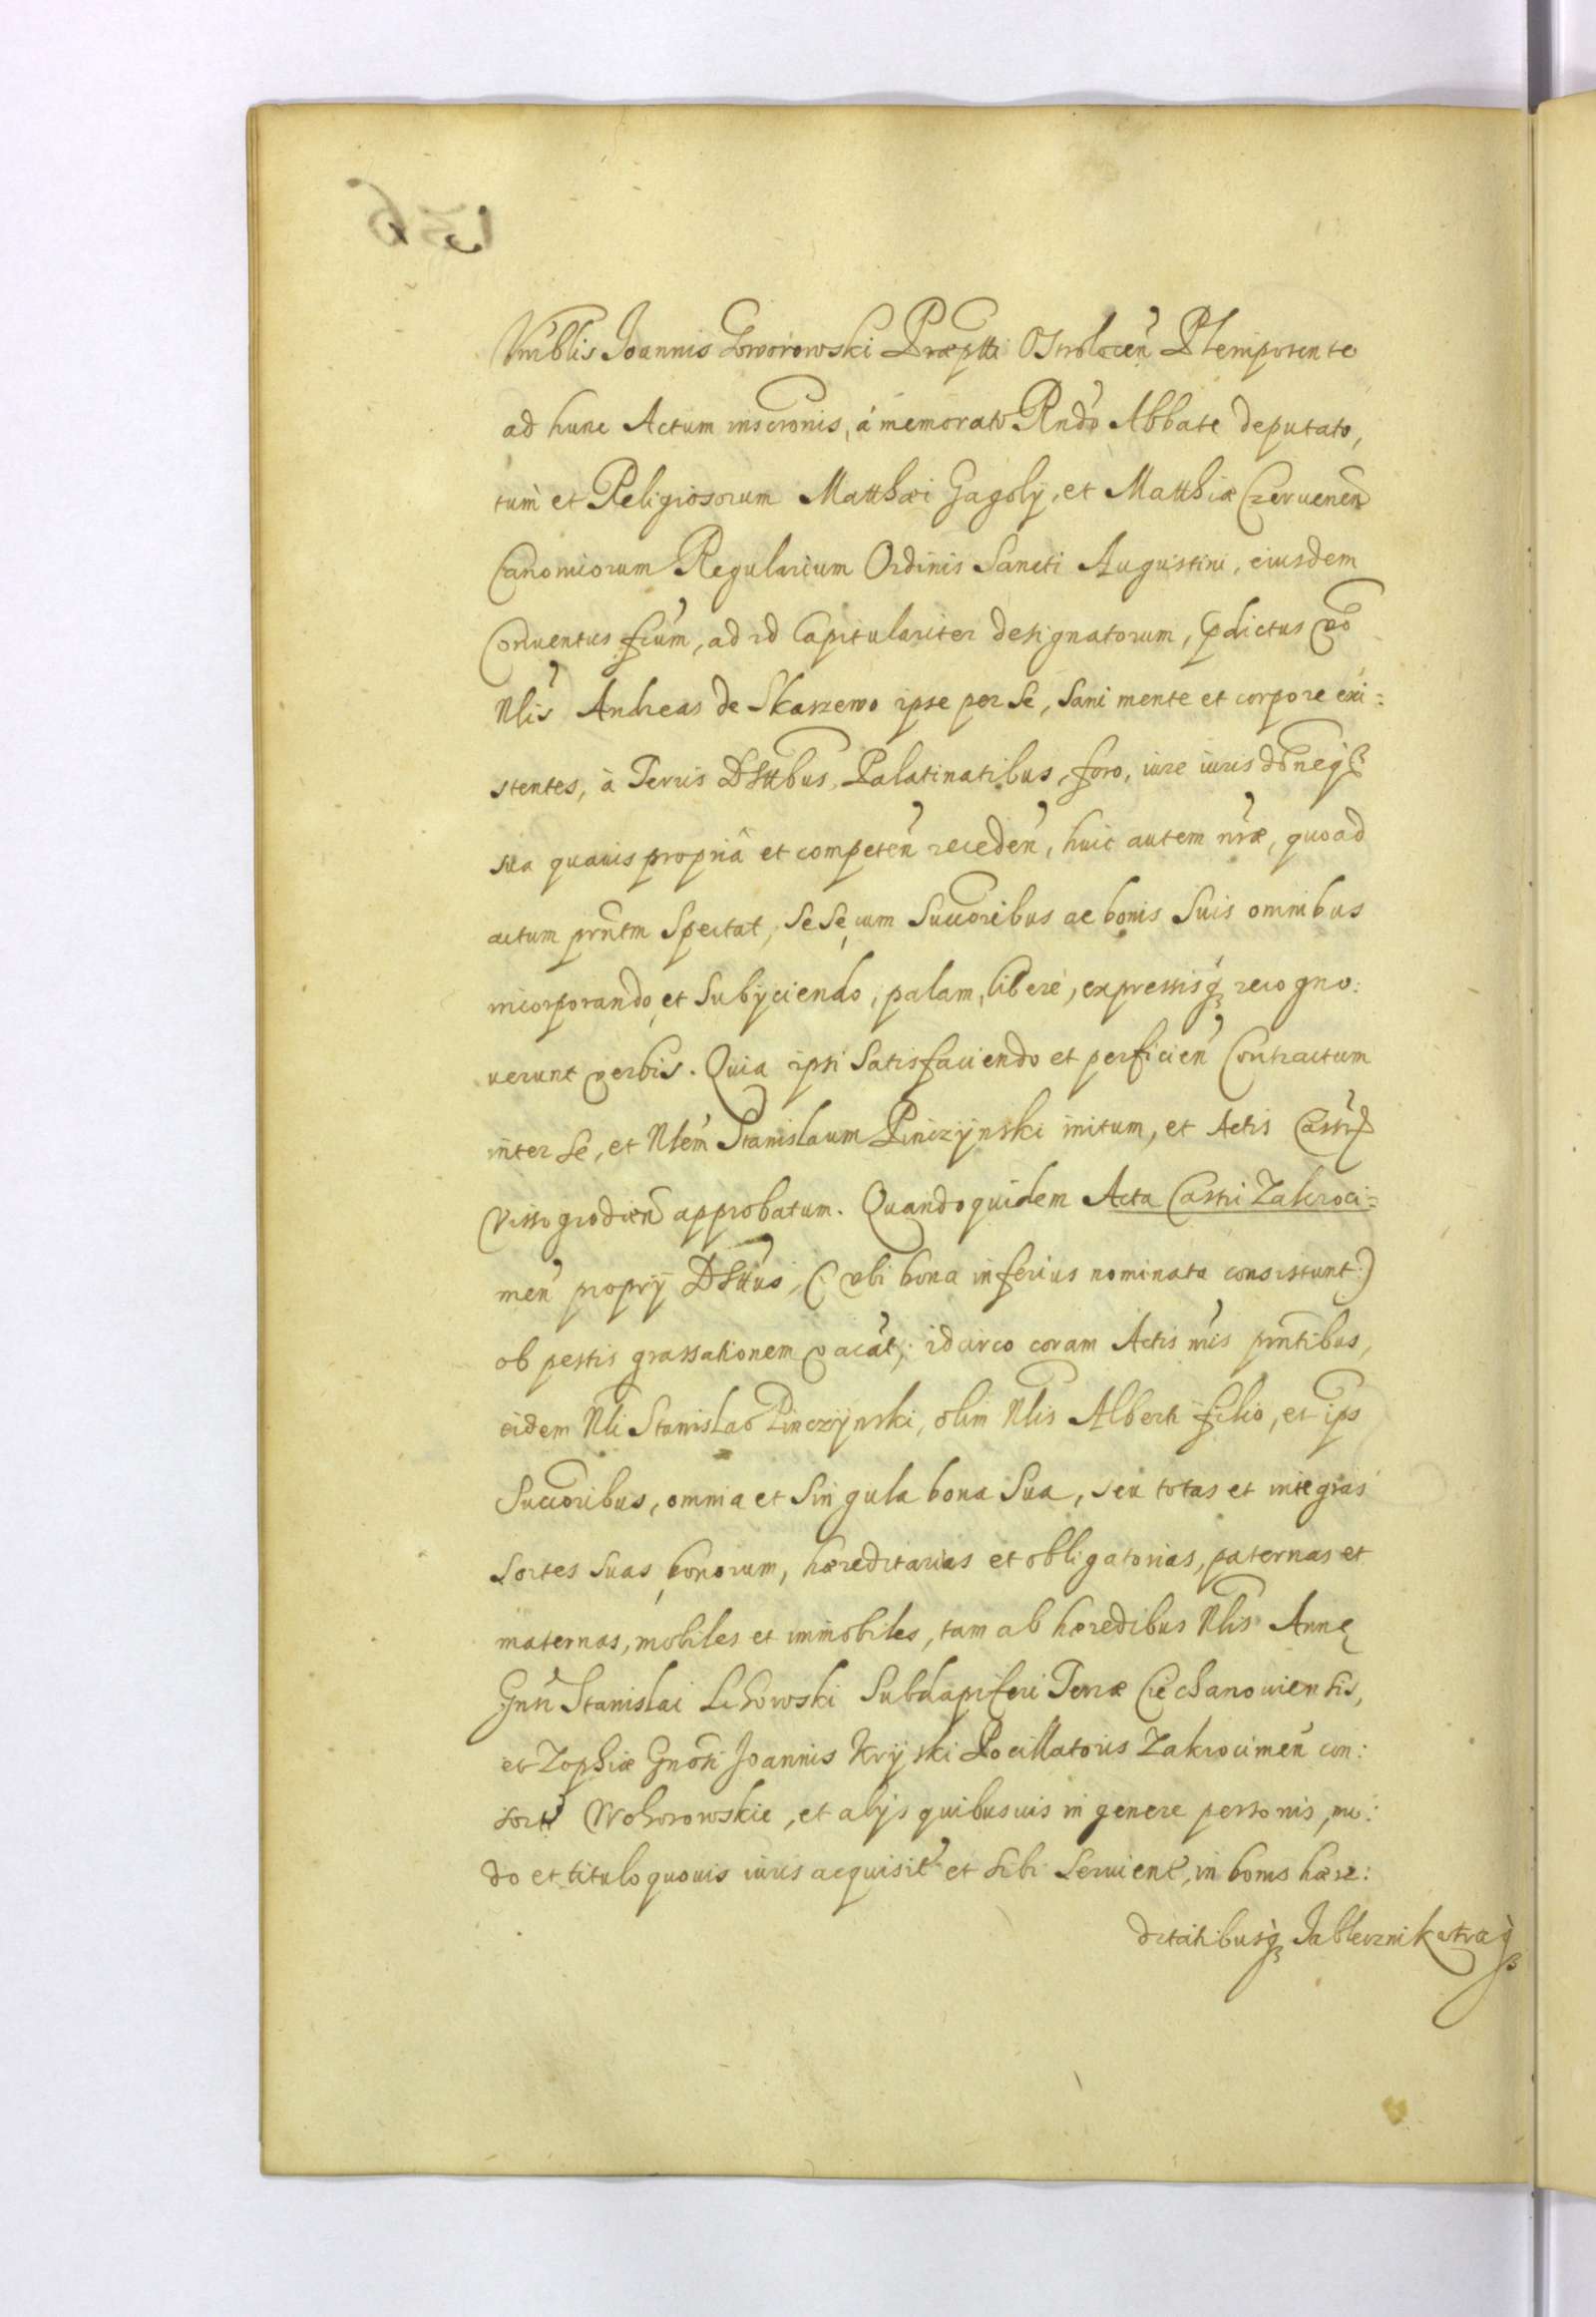 Vnrblis Joannis Goworowski Præptti Ostrolecen Plenipotente
ad hunc Actum inscronis, á memorato Rndo Abbate deputato,
tum et Religiosorum Matthæi Gagoly, et Matthiæ Czeruenen
Canonicorum Regularium Ordinis Sancti Augustini, eiusdem
Conuentus frum, ad id Capitulariter designatorum, pdictus vo
Nlis Andreas de Skarzewo ipse per se, sani mente et corpore exi:
stentes, à Terris Dsttbus, Palatinatibus, foro, iure iurisdoneq
sua quauis propria et competen receden, huic autem nræ, quoad
actum prntm spectat, sese cum Succoribus ac bonis suis omnibus
incorporando et subyciendo, palam, liberè, expressisq recogno:
uerunt verbis. Quia ipsi satisfaciendo et perficien Contractum
inter se, et Nlem Stanislaum Pinczynski initum, et Actis Castri
Vissogrodien approbatum. Quandoquidem Acta Castri Zakroci=
men propry Dsttus, (: vbi bona inferius nominata consistunt:)
ob pestis grassationem vacāt, idcirco coram Actis nris prntibus,
eidem Nli Stanislao Pinczynski, olim Nlis Alberti filio, et ips
Succoribus, omnia et singula bona sua, seu totas et integras
sortes suas bonorum, hæreditarias et obligatorias, paternas et
maternas, mobiles et immobiles, tam ab hæredibus Nlis Annę
Gnsi Stanislai Lchowski Subdapiferi Terræ Ciechanouiensis,
et Zophiæ Gnosi Joannis Kryski Pocillatoris Zakrocimen con:
sort Wohorowskie, et alys quibusuis in genere personis, mo:
do et titulo quouis iuris acquisit et sibi seruient, in bonis hære:
ditatibusq Jablecznik utraq